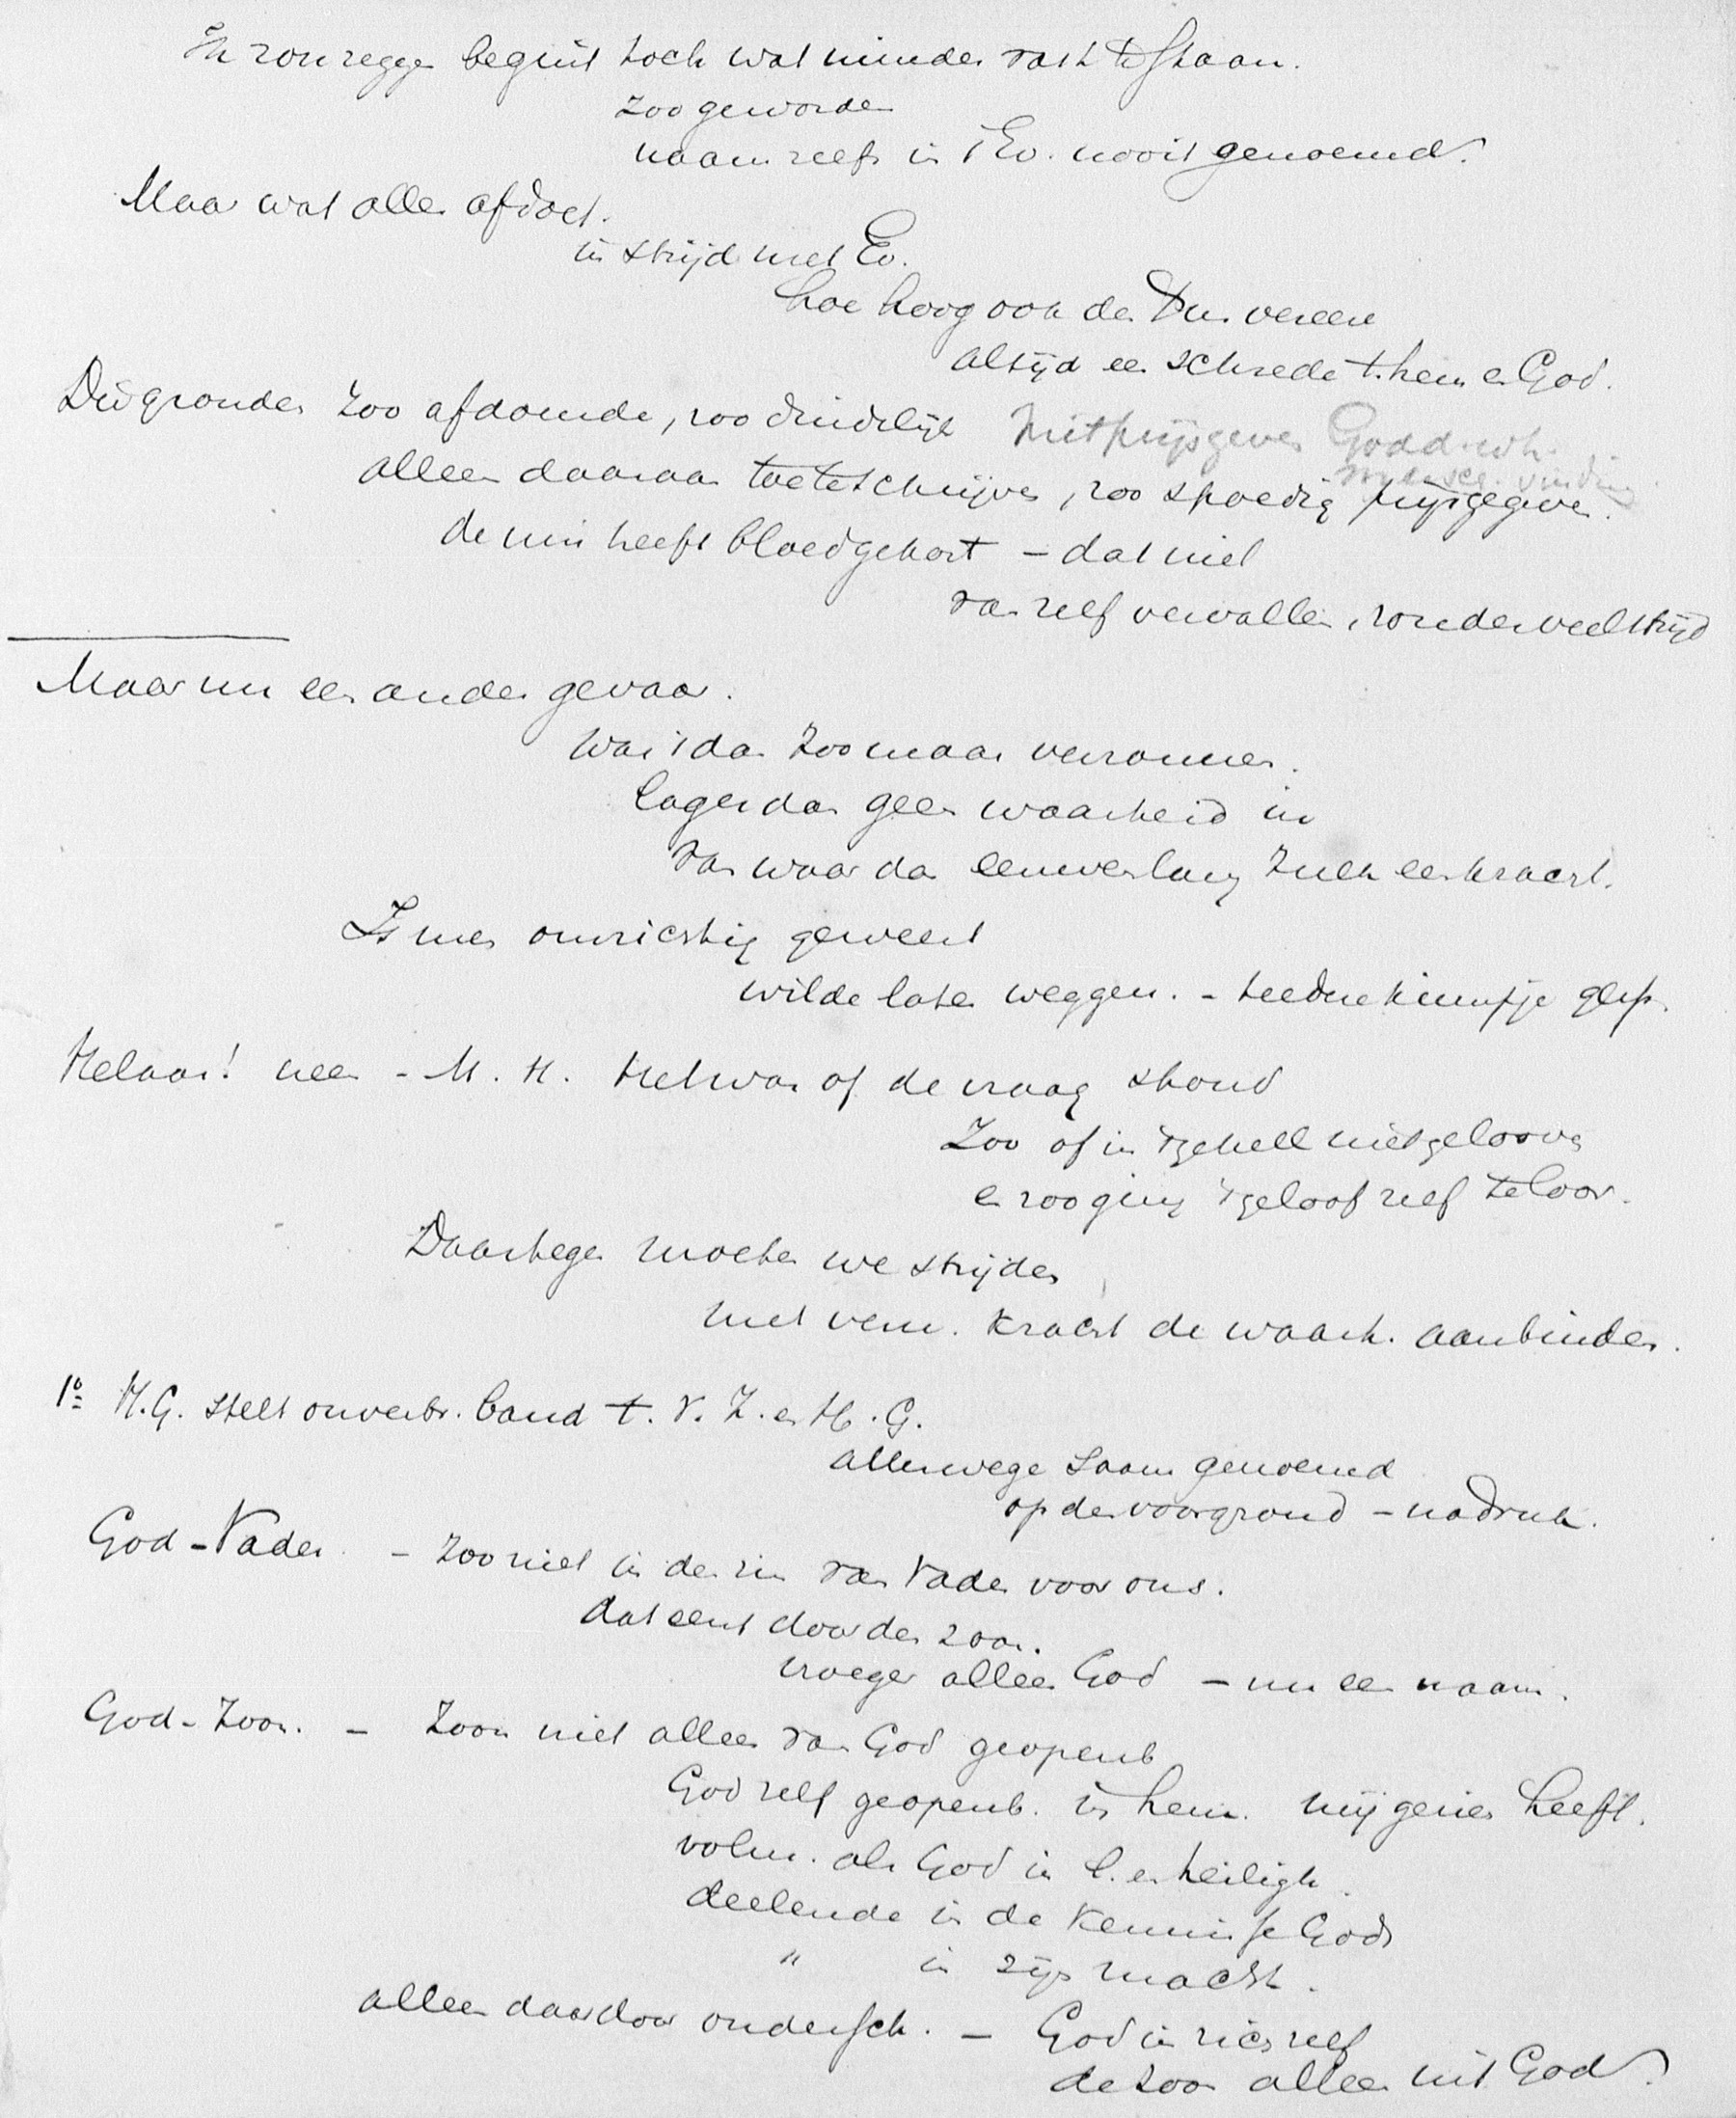 Ik zou zegge begint toch wat minder vast te staan.
zoo geworden
naam zelfs in 't Ev. nooit genoemd.
Maar wat alles afdoet.
in strijd met Ev.
hoe hoog ook den vereere
altijd een schrede t. hem en God.
Die gronden zoo afdoende, zoo duidelijk
Niet prijsgeven Godd.
alleen daaraan toeteschrijven, zoo spoedig prijsgegeven.
de min heeft bloed gekost – dat niet
van zelf vervallen, zonder veel strijd
Maar nu een ander gevaar.
Was 't dan zoo maar verzonnen.
lager dan geen waarheid in
van waar dan eeuwenlang zulk een kracht.
Is men omzichtig geweest
wilde loten weggen. – teedere kiempje
Helaas! neen – M. H. Het was of de vraag stond
Zoo of in 't geheel niet gelooven
en zoo ging 't geloof zelf te loor.
Daartegen moeten we strijden
met vern. kracht de waarh. aanbinden.
1º H.G. stelt onverbr. band t. V. Z. en H. G.
allerwege saam genoemd
op den voorgrond – nadruk.
God – Vader. – Zoo niet in den zin van Vader voor ons.
dat eerst door den zoon.
vroeger alleen God – nu een naam.
God – Zoon. – Zoon niet alleen van God geopenb
God zelf geopenb. in hem. mij gezien heeft.
volm. als God in l. en heiligh.
deelende in de kennisse Gods
" in zijn macht.
alleen daardoor ondersch. – God in zich zelf
de zoon alleen uit God.